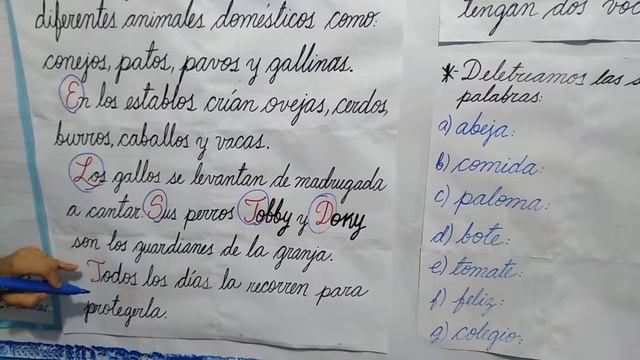 diferentes animales domésticos como:
conejos, patos, pavos y gallinas.
En los establos crían ovejas, cerdos,
burros, caballos y vacas.
Los gallos se levantan de madrugada
a cantar. Sus perros Tobby y Dony
son los guardianes de la granja.
Todos los días la recorren para
protegerla.
tengan dos
*- Deletreamos las
palabras:
a) abeja:
b) comida:
c) paloma:
d) bote:
e) tomate:
f) feliz:
g) colegio: